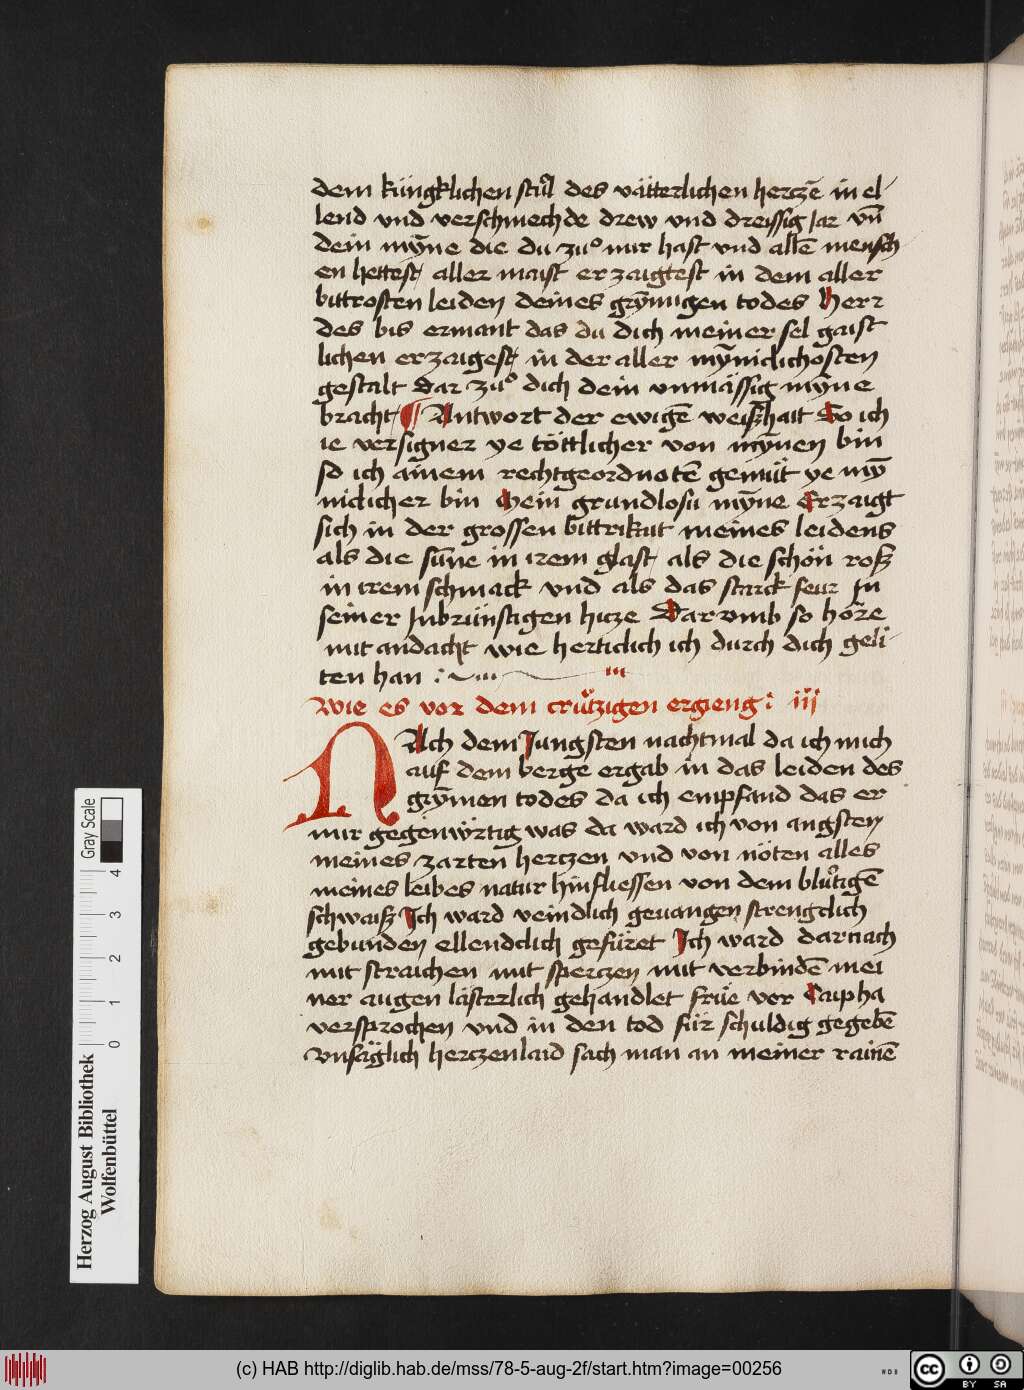 dem küngklichen stůl des vätterlichen herczē in el
lend vnd verschmechde drew vnd dreissig jar vn̄
dein mȳne die du zuͦ mir hast vnd allē mensch
en hettest aller maist erzaigtest in dem aller
bittrosten leiden deines grȳmigen todes Herr
des bis ermant das du dich meiner sel gaist
lichen erzaigest in der aller mȳniclichosten
gestalt Dar zuͦ dich dein vnmässig mȳne
bracht ¶ Antwort der ewigē weiszhait So ich
ie versigner ye töttlicher von mȳnen bin
so ich ainem rechtgeordnotē gemüt ye mȳ
niclicher bin Mein grundlosü mȳne Erzaigt
sich in der grossen bittrikait meines leidens
als die sūne in irem glast als die schön rosz
in irem schmack vnd als das starck feur In
seiner Inbrünstigen hicze Dar vmb so höre
mit andacht wie herticlich ich durch dich geli
ten han
iii
Wie es vor dem crützigen ergieng iii
NAch dem Jungsten nachtmal da ich mich
auf dem berge ergab in das leiden des
grȳmen todes da ich empfand das er
mir gegenwärtig was da ward ich von angsten
meines zarten herczen vnd von nöten alles
meines leibes natur hinfliessen von dem blůtigē
schwaisz Ich ward veindlich geuangen strengclich
gebunden ellendclich gefüret Ich ward darnach
mit straichen mit sperczen mit verbindē mei
ner augen lästerlich gehandlet früe vor Caipha
versprochen vnd in den tod für schuldig gegebē
Vnsäglich herczenlaid sach man an meiner rainē
Herzog August Bibliothek
Wolfenbüttel
0 1 2 3 4
Gray Scale
(c) HAB http://diglib.hab.de/mss/78-5-aug-2f/start.htm?image=00256
WDB
cc BY SA